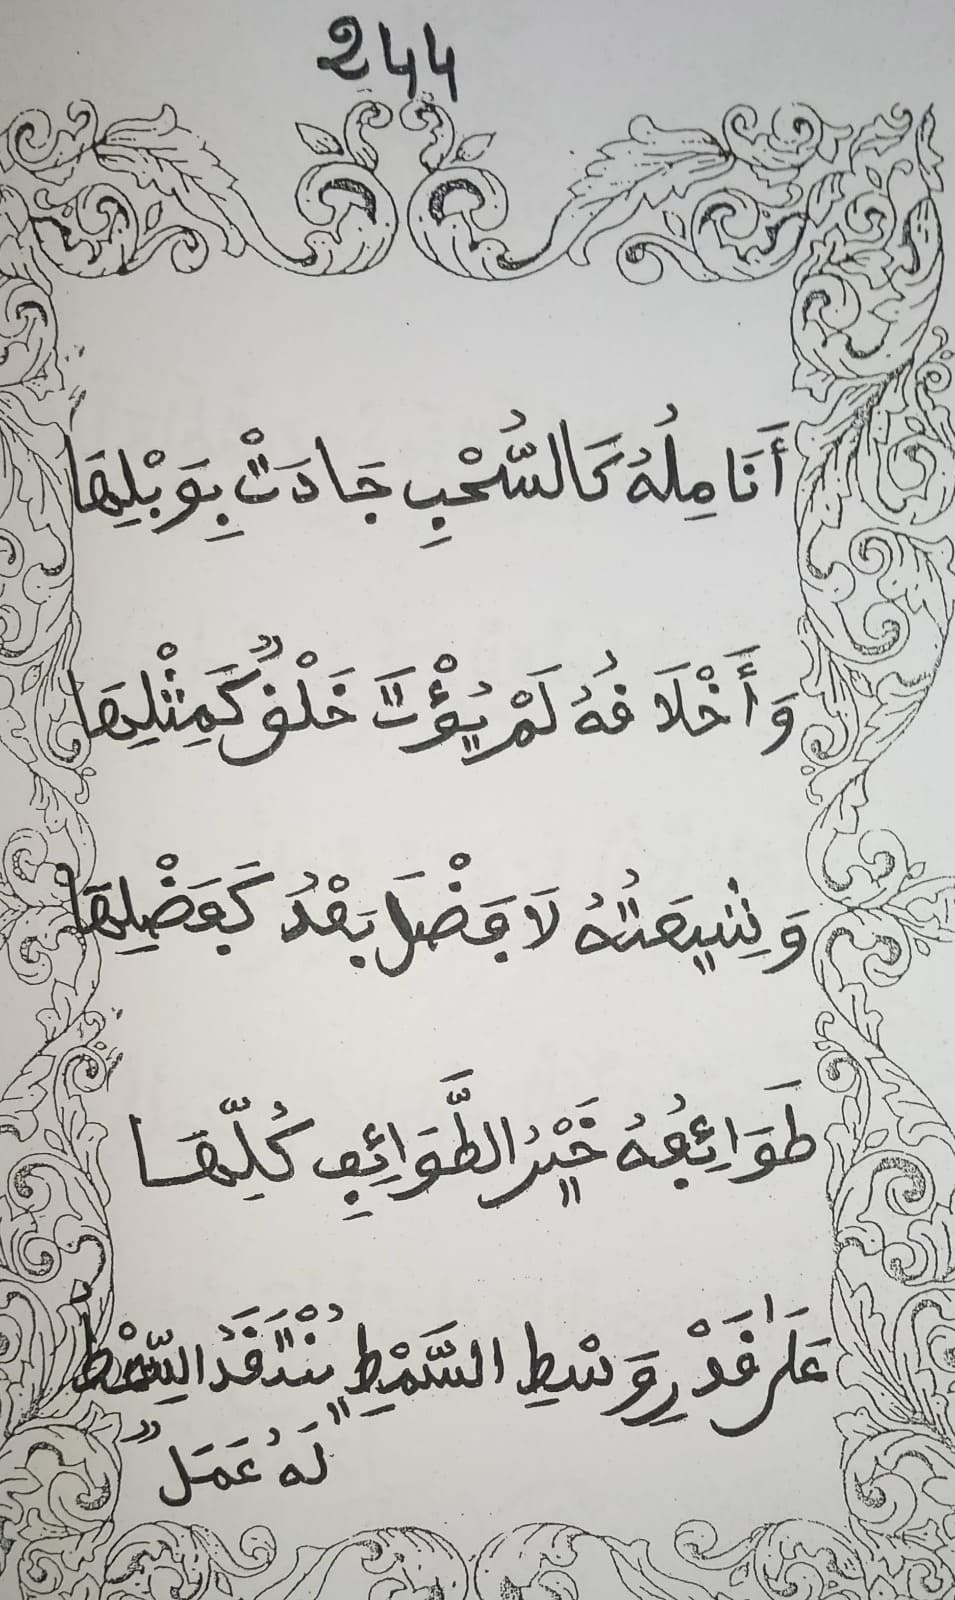 244
أَنَامِلُهُ كَالسُّحْبِ جَادَتْ بِوَبْلِهَا
وَأَخْلَاقُهُ لَمْ يُؤْتَ خَلْقٌ كَمِثْلِهَا
وَشِيعَتُهُ لَا فَضْلَ بَعْدُ كَفَضْلِهَا
طَوَائِفُهُ خَيْرُ الطَّوَائِفِ كُلِّهَا
عَلَى قَدْرِ وَسْطِ السَّمْطِ يُنْتَقَدُ السِّمْطُ
لَهُ عَمَلٌ